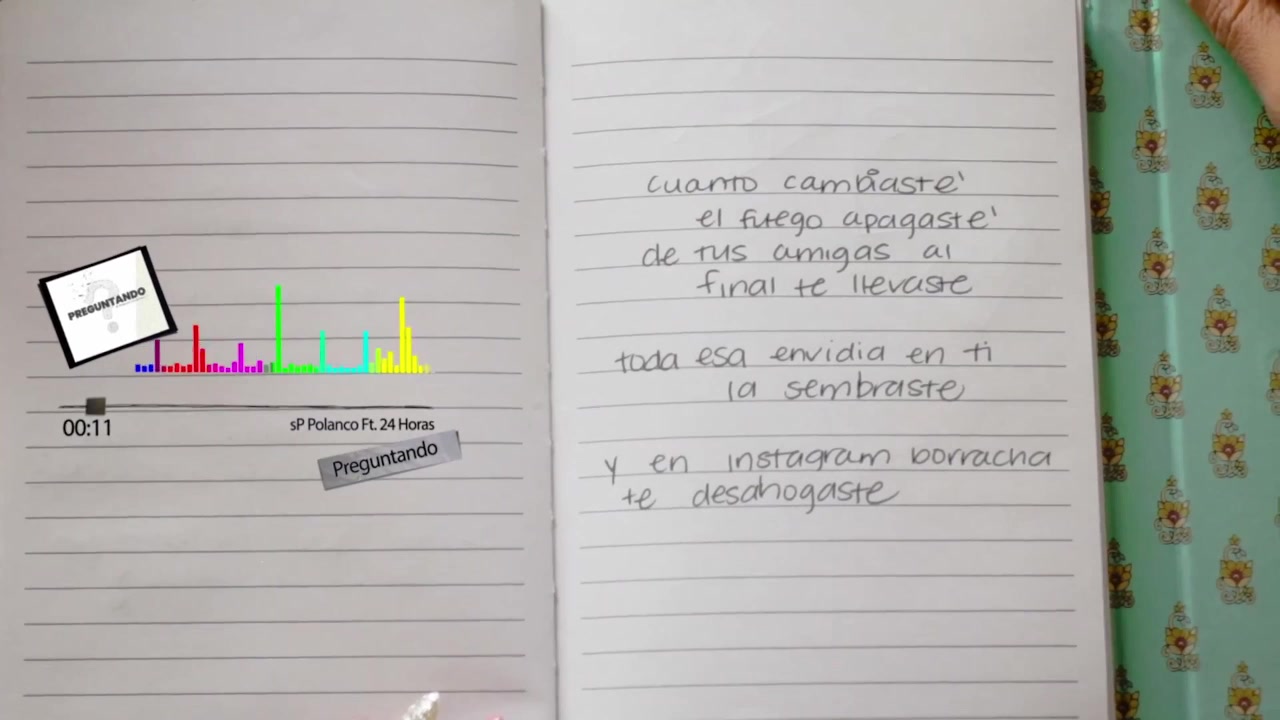 PREGUNTANDO
00:11
sP Polanco Ft. 24 Horas
Preguntando
cuanto cambiaste'
el fuego apagaste'
de tus amigas al
final te llevaste
toda esa envidia en ti
la sembraste
y en instagram borracha
te desahogaste